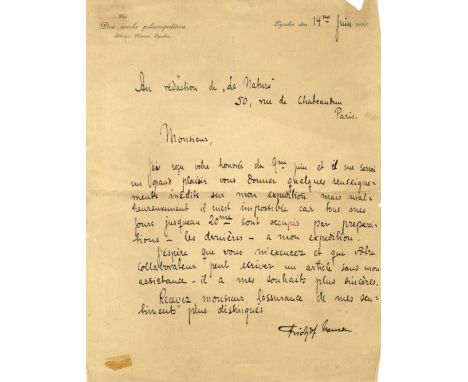 Den norske polarexpedition
14me juin
Au rédaction de „La Nature"
50, rue de Chateaudun
Paris.
Monsieur,
J'ai reçu votre honorée du 9me juin et il me serai
un grand plaisir vous donner quelques renseigne-
ments inédits sur mon expedition mais mal-
heureusement il m'est impossible car tous mes
jours jusqueau 20me sont occupés par prepara-
tions – les dernières – a mon expedition.
J'espère que vous m'excuzez et que vôtre
collaborateur peut ecriver un article sans mon
assistance – il a mes souhaits plus sincères.
Recevez monsieur l'assurance de mes sen-
timents plus distingués
Fridtjof Nansen